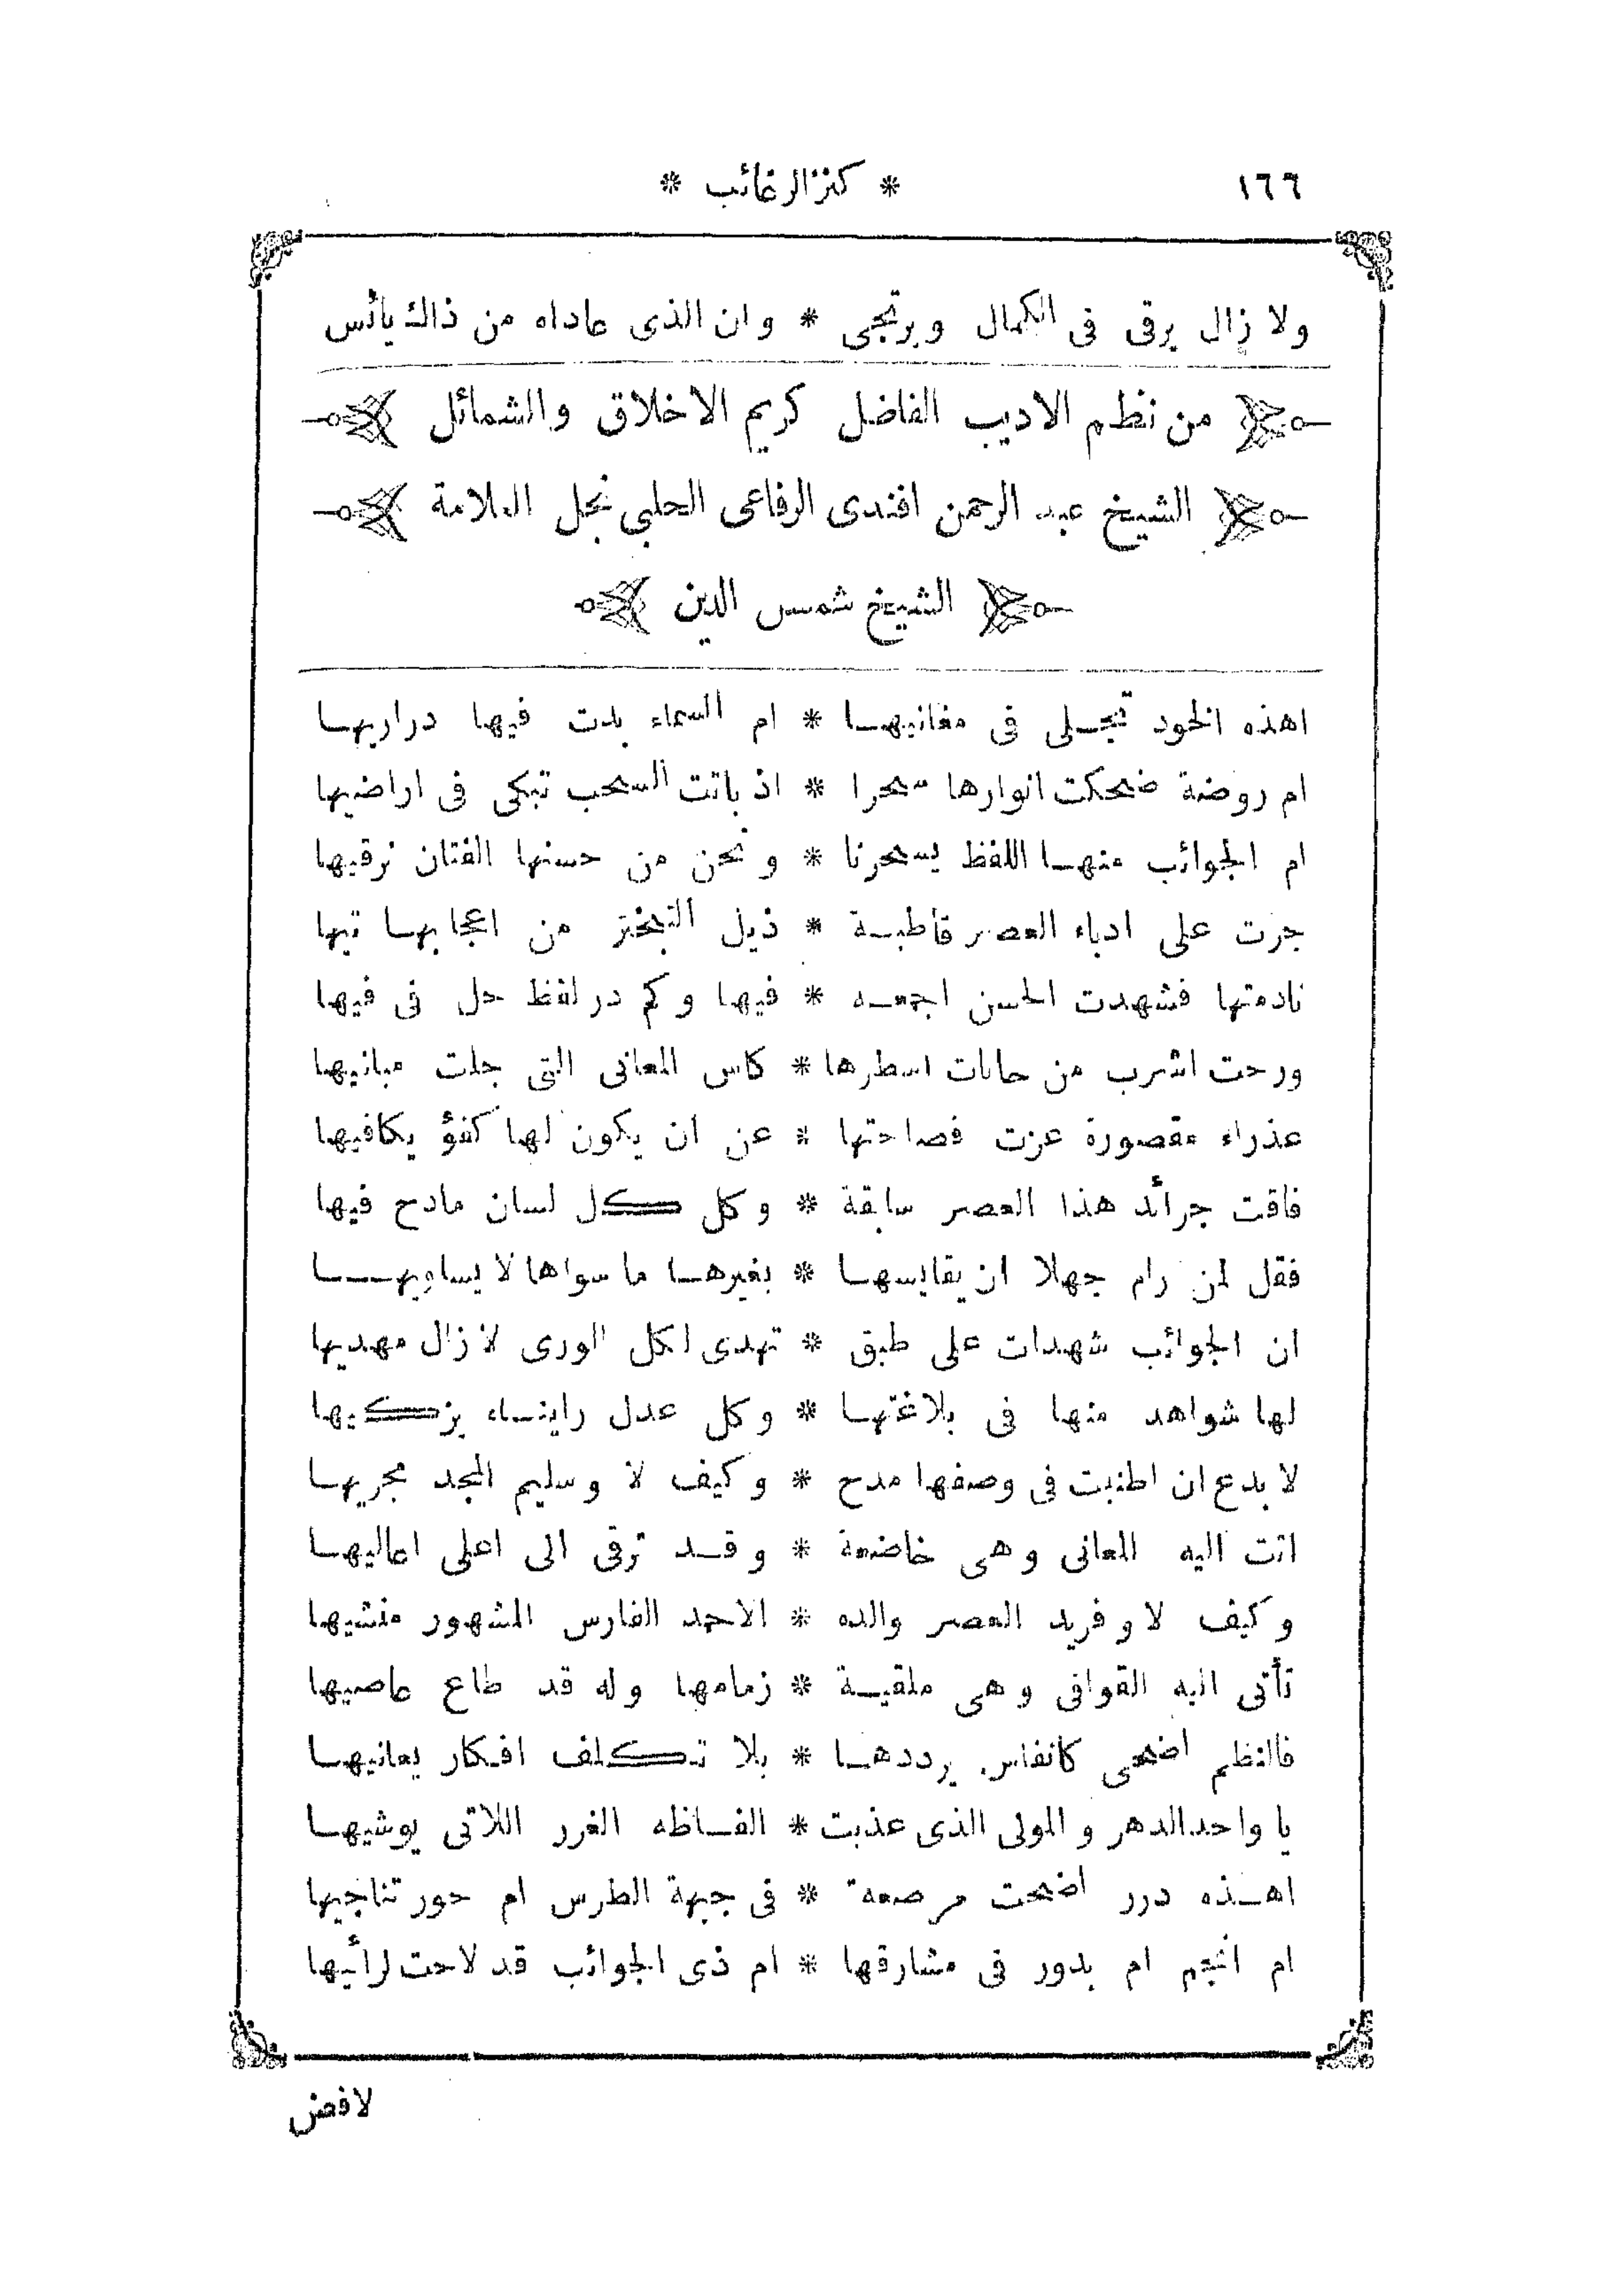 ١٦٦ * كنز الرغائب *
ولا زال يرقى فى الكمال ويرتجى * وان الذى عاداه من ذاك يائس
من نظم الاديب الفاضل كريم الاخلاق والشمائل
الشيخ عبد الرحمن افندى الرفاعى الحلبى نجل العلامة
الشيخ شمس الدين
اهذه الخود تجلى فى مغانيها * ام السماء بدت فيها دراريها
ام روضة ضحكت انوارها سحرا * اذ باتت السحب تبكى فى اراضيها
ام الجوائب منها اللفظ يسحرنا * ونحن من حسنها الفتان نرقيها
جرت على ادباء العصر قاطبة * ذيل التبختر من اعجابها تيها
نادمتها فشهدت الحسن اجمعه * فيها وكم در لفظ حل فى فيها
ورحت اشرب من حانات اسطرها * كاس المعانى التى جلت مبانيها
عذراء مقصورة عزت فصاحتها * عن ان يكون لها كفؤ يكافيها
فاقت جرائد هذا العصر سابقة * وكل كل لسان مادح فيها
فقل لمن رام جهلا ان يقايسها * بغيرها ما سواها لا يساويها
ان الجوائب شهدات على طبق * تهدى لكل الورى لا زال مهديها
لها شواهد منها فى بلاغتها * وكل عدل رايناه يزكيها
لا بدع ان اطنبت فى وصفها مدح * وكيف لا وسليم المجد مجريها
اتت اليه المعانى وهى خاضعة * وقد ترقى الى اعلى اعاليها
وكيف لا وفريد العصر والده * الاحمد الفارس المشهور منشيها
تأتى اليه القوافى وهى ملقية * زمامها وله قد طاع عاصيها
فالنظم اضحى كانفاس يرددها * بلا تكلف افكار يعانيها
يا واحد الدهر والمولى الذى عذبت * الفاظه الغرر اللاتى يوشيها
اهذه درر اضحت مرصعة * فى جبهة الطرس ام حور تناجيها
ام انجم ام بدور فى مشارقها * ام ذى الجوائب قد لاحت لرائيها
لافض